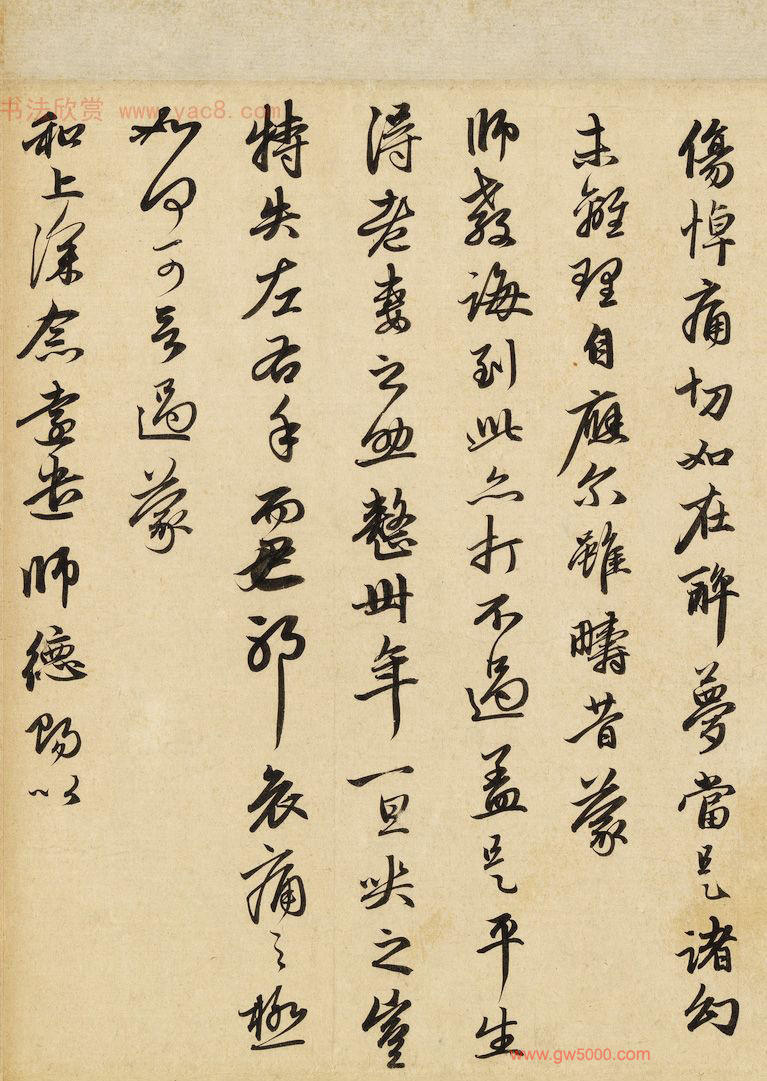 傷悼痛切如在醉夢當是諸幻
未離理自應尔雖疇昔蒙
師教誨到此亦打不過盖是平生
得老妻之助整卅年一旦哭之豈
特失左右手而已耶哀痛之極
如何可言過蒙
和上深念遠遣師德賜以
书法欣赏 www.yac8.com
www.gw5000.com